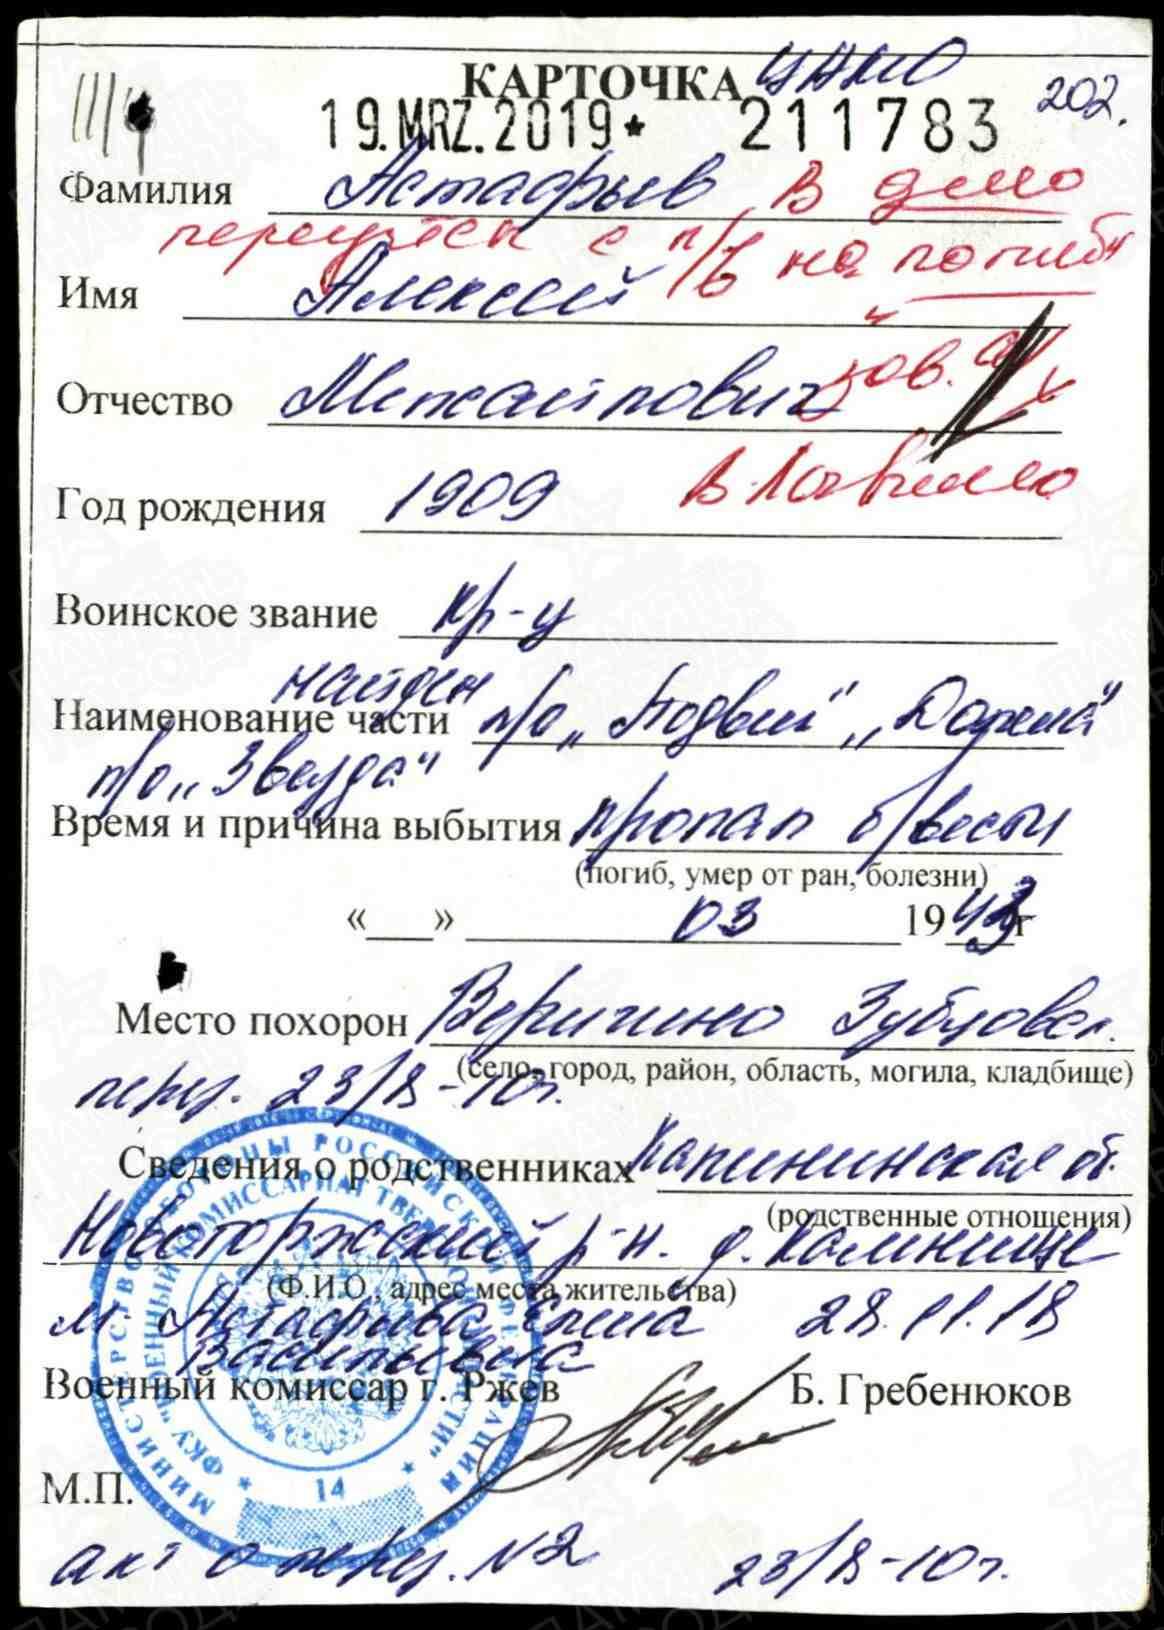 ЦАМО
КАРТОЧКА
202.
19.MRZ.2019* 211783
Фамилия Астафьев В дело
переучтен с п/б на погибш
Имя Алексей
Отчество Михайлович
Год рождения 1909
Воинское звание кр-ц
найден
Наименование части п/о „Подвиг" „Дорога"
п/о „Звезда"
Время и причина выбытия пропал б/вести
(погиб, умер от ран, болезни)
«___» 03 1943г
Место похорон Веригино Зубцовск.
(село, город, район, область, могила, кладбище)
перез. 23/VIII-10г.
Сведения о родственниках Калининская об.
(родственные отношения)
Новоторжский р-н. д. Калиницы
(Ф.И.О., адрес места жительства)
м Астафьева Елена 28.11.18
Васильевна
Военный комиссар г. Ржев Б. Гребенюков
МИНИСТЕРСТВО ОБОРОНЫ РОССИЙСКОЙ ФЕДЕРАЦИИ
14
М.П.
акт о перез. №2 23/VIII-10г.